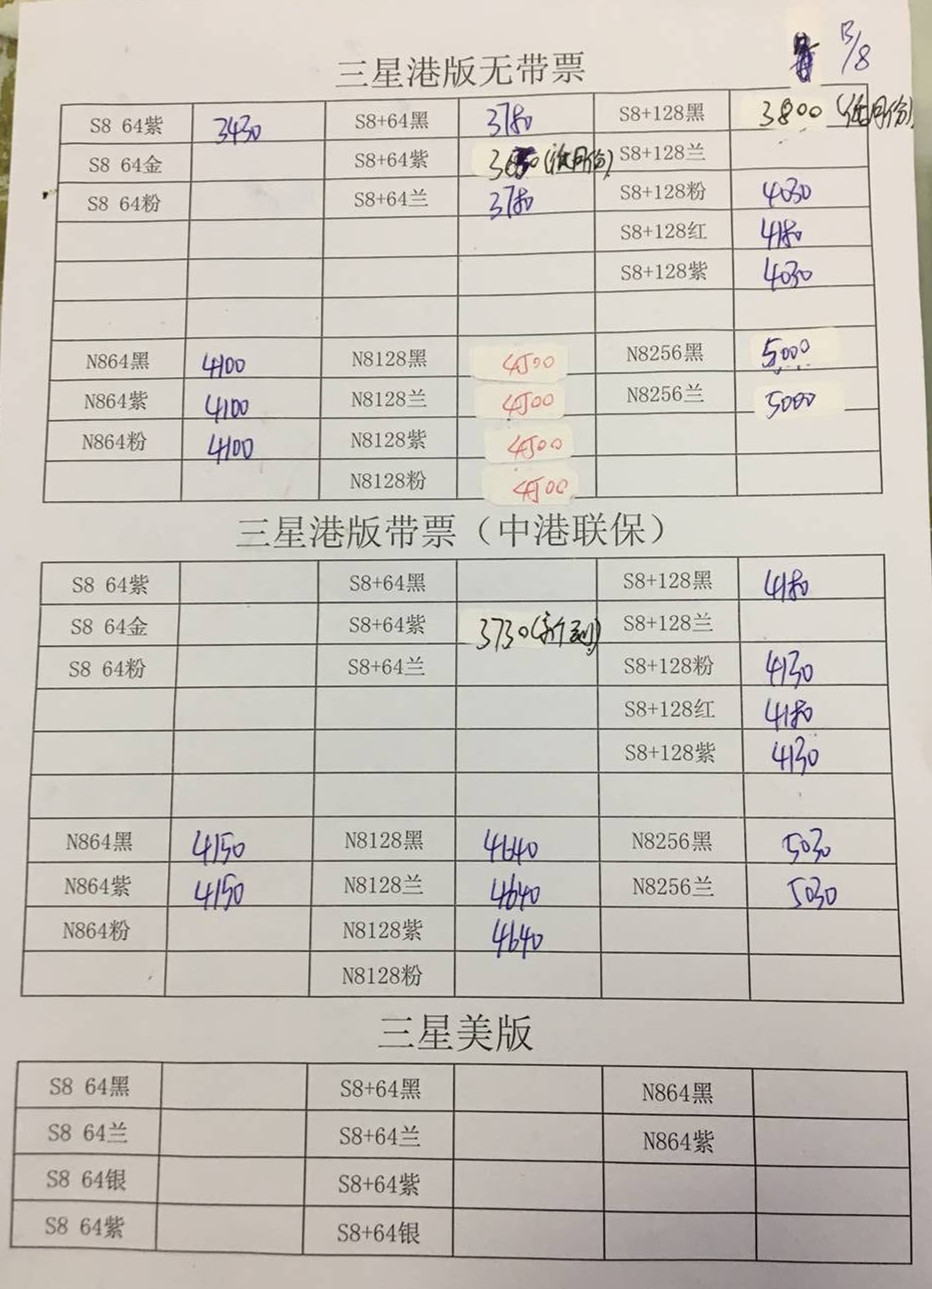 /8
三星港版无带票
S8 64紫 3430 S8+64黑 3780 S8+128黑 3800(低月份)
S8 64金 S8+64紫 (低月份) S8+128兰
S8 64粉 S8+64兰 3780 S8+128粉 4030
S8+128红 4180
S8+128紫 4030
N864黑 4100 N8128黑 4500 N8256黑 5000
N864紫 4100 N8128兰 4500 N8256兰 5000
N864粉 4100 N8128紫 4500
N8128粉 4500
三星港版带票（中港联保）
S8 64紫 S8+64黑 S8+128黑 4180
S8 64金 S8+64紫 3730 S8+128兰
S8 64粉 S8+64兰 S8+128粉 4130
S8+128红 4180
S8+128紫 4130
N864黑 4150 N8128黑 4640 N8256黑 5030
N864紫 4150 N8128兰 4640 N8256兰 5030
N864粉 N8128紫 4640
N8128粉
三星美版
S8 64黑 S8+64黑 N864黑
S8 64兰 S8+64兰 N864紫
S8 64银 S8+64紫
S8 64紫 S8+64银